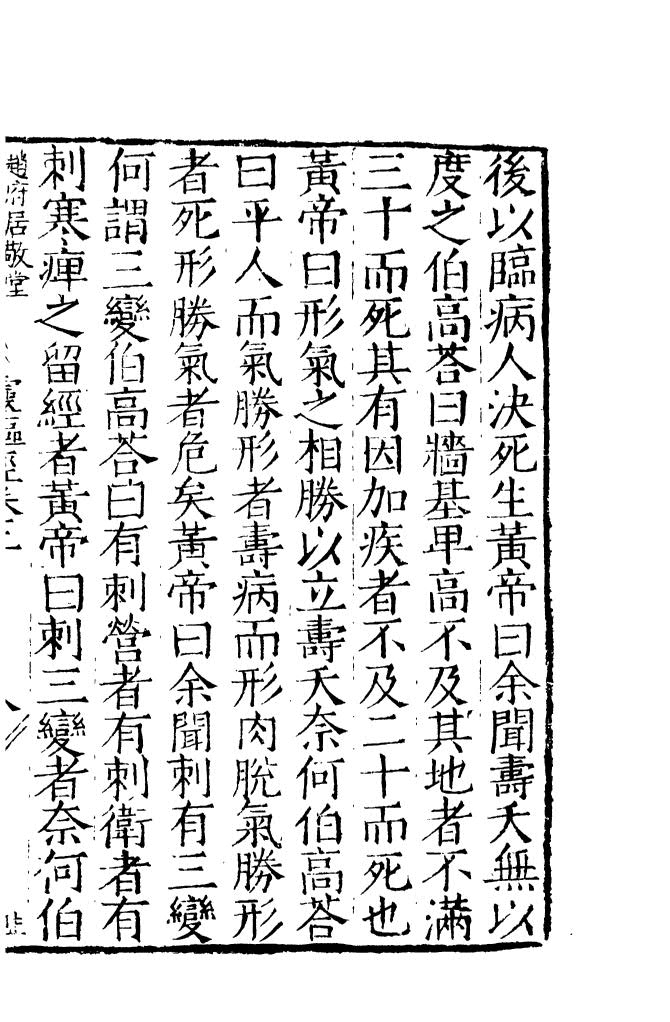 後以臨病人決死生黃帝曰余聞壽夭無以
度之伯高荅曰牆基卑高不及其地者不滿
三十而死其有因加疾者不及二十而死也
黃帝曰形氣之相勝以立壽夭奈何伯高荅
曰平人而氣勝形者壽病而形肉脫氣勝形
者死形勝氣者危矣黃帝曰余聞刺有三變
何謂三變伯高荅曰有刺營者有刺衛者有
刺寒痺之留經者黃帝曰刺三變者奈何伯
趙府居敬堂